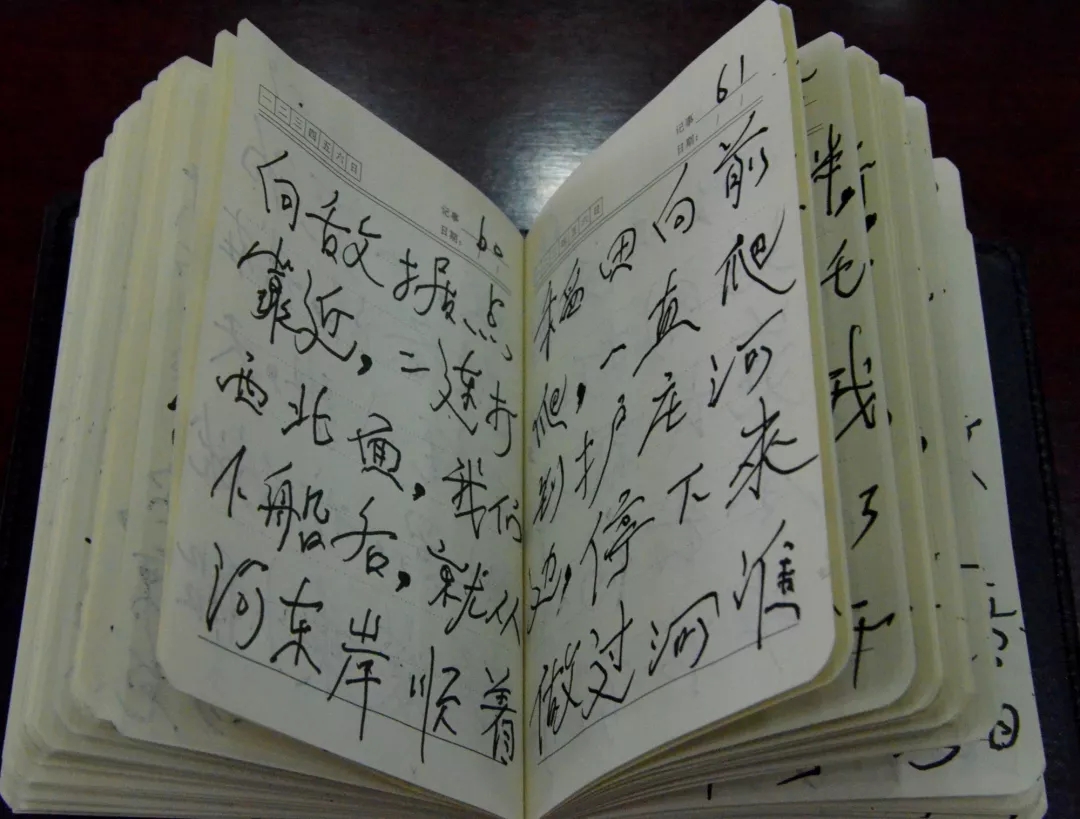 一二三四五六日
记事
日期:
60
向敌据点
靠近,二连打
西北面,我们
下船后,就从
河东岸顺着
61
记事
日期:
稻田向前
爬,一直爬
到扩户庄河
边,停下来
做过河准